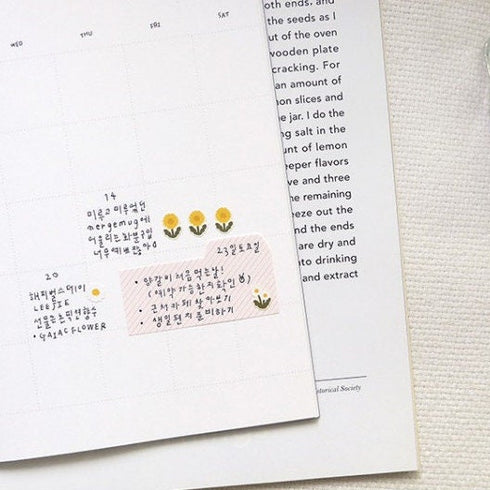 WED THU FRI SAT
14
미루고 미루었던
mergemug에
어울리는 화분구입
너무예쁘잖아
20
해피벌스데이
LEEJIE
선물은 픽연향수
• GAIAC FLOWER
23일토요일
• 양갈비 처음 먹는날!
(예약가능한지확인)
• 근처카페찾아보기
• 생일편지준비하기
oth ends, and
the seeds as I
ut of the oven
wooden plate
cracking. For
an amount of
on slices and
e jar. I do the
g salt in the
unt of lemon
eeper flavors
ve and three
he remaining
eeze out the
nd the ends
are dry and
to drinking
and extract
istorical Society